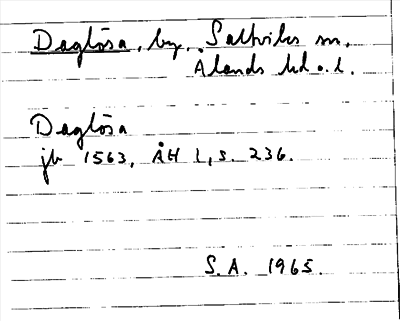 Daglösa, by, Saltviks sn,
Ålands hd o. l.
Daglösa
jb 1563, ÅH 1, s. 236.
S.A. 1965.